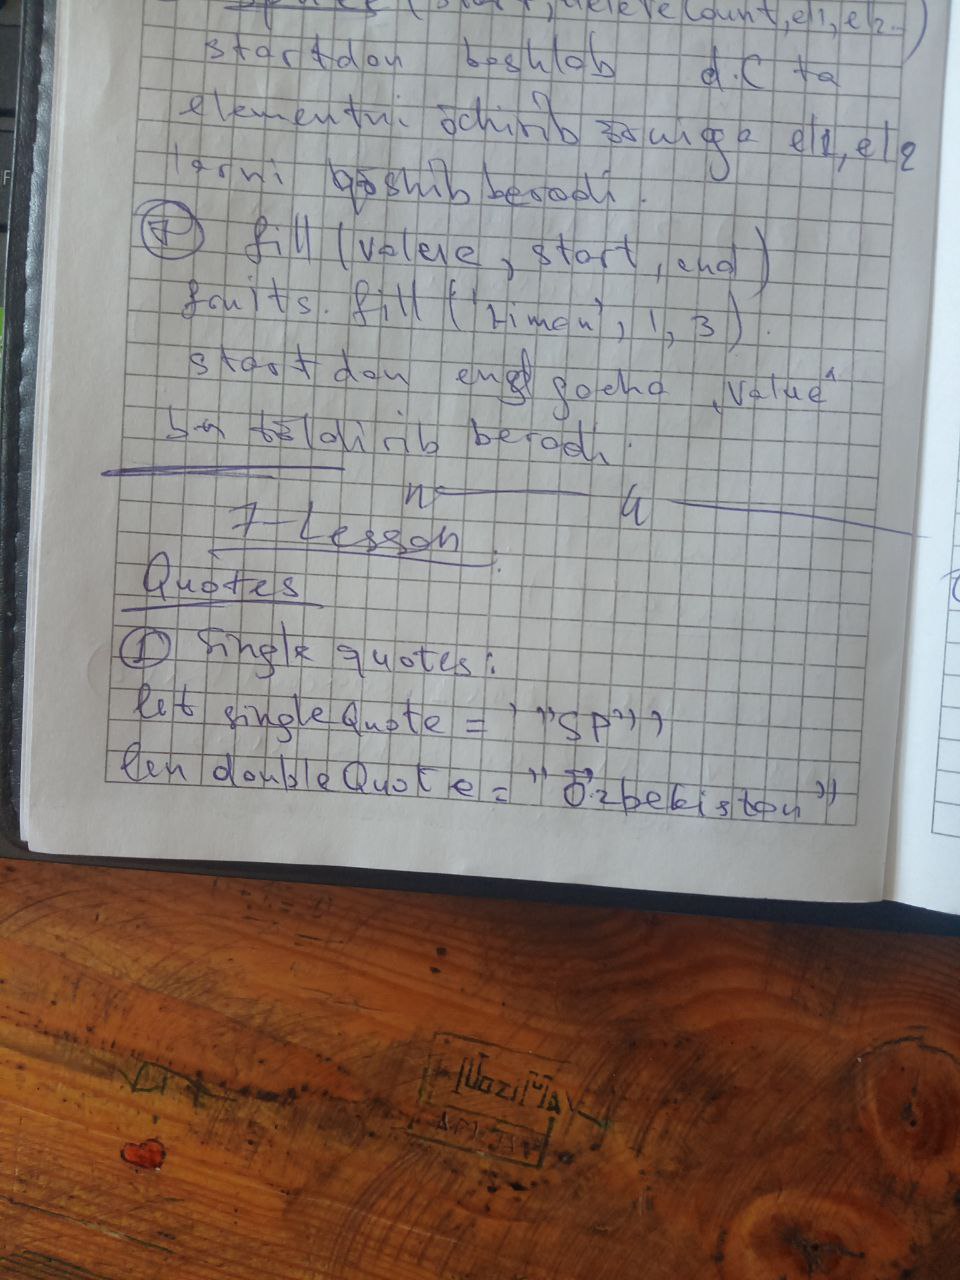 splice (start, deleteCount, el1, el2...)
startdan boshlab d.C ta
elementni õchirib õrniga el1, el2
larni qõshib beradi.
7 fill (value, start, end)
fruits.fill ('Limon', 1, 3).
startdan endgacha „value“
b-n tõldirib beradi.
7-Lesson.
Quotes
1 Single quotes:
let singleQuote = ' "SP" '
len doubleQuote = "Õzbekiston"
NaziMa